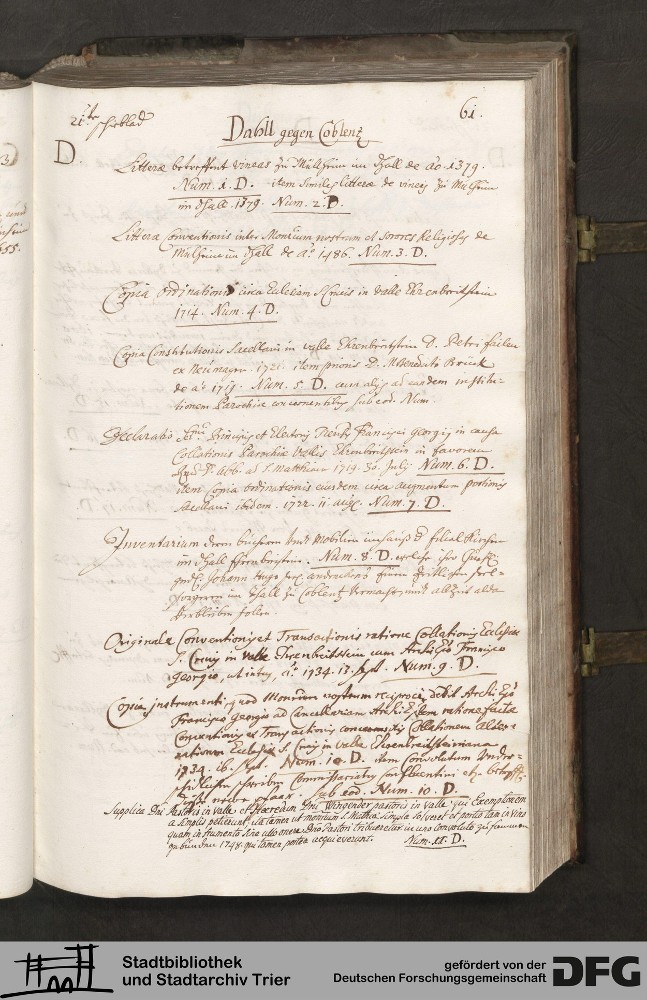 21te schieblad
61.
Dahll gegen Coblenz
D.
Litteræ betreffent vineas zu Mülheim im Thall de aō 1379.
Num. 1. D. item similes litteræ de vineis zu Mülheim
im Thall 1379. Num. 2. D.
Litteræ Conventionis inter Monrium nostrum et sorores Religiosas de
Mülheim im Thall de aō 1486. Num. 3. D.
Copia ordinationis circa Ecclesiam S. Crucis in Valle Ehrenbreitstein
1714. Num. 4. D.
Copia Constitutionis Sacellani in valle Ehrenbreitstein D. Petri
ex Neumagen 1721. item prioris D. Benedicti Brück
de aō 1719. Num. 5. D. cum alijs ad eandem institu-
tionem Parochiæ concernentibus sub eod. Num.
Declaratio Principis et Electoris Francisci Georgij in causa
Collationis Parochiæ Vallis Ehrenbreitstein in favorem
Abb. ad S. Matthiam 1729. 30. July Num. 6. D.
item Copia ordinationis eiusdem circa augmentum portionis
Sacellani ibidem. 1732. 11. aug. Num. 7. D.
Inventarium deren buchern und Mobilien filial Kirchen
im Thall Ehrenbreitstein. Num. 8. D. welche
Johann Hugo
im Thall zu Coblentz vermacht, und allzeit alda
verbleiben sollen.
Originale Conventionis et Transactionis ratione Collationis Ecclesiæ
S. Crucis in Valle Ehrenbreitstein cum Francisco
Georgio, ut intus, aō 1734. 17. sept. Num. 9. D.
Copia instrumenti quod Monrium nostrum reciproce dedit
Francisco Georgio ad Cancellariam ratione factæ
Conventionis et Transactionis concernentis Collationem alter-
nativam Ecclesiæ S. Crucis in valle Ehrenbreitsteiniana
1734. 16. Sept. Num. 10. D. item Convolutum
schreiben Commissariatus Confluentini etc.
sub eod. Num. 10. D.
Supplica Dni Pastoris in valle et Hæredum Dni Wingender pastoris in valle, qui Exemptionem
a simplis petierunt, uti tamen ut monrium S. Mathiæ simpla solveret et portio tam in vino
quam in frumento sine ullo onere Dno Pastori tribueretur in uno convoluto zu sammen
gebunden 1748. qui tamen postea acquieverunt. Num. 11. D.
3.
und
655.
Stadtbibliothek
und Stadtarchiv Trier
gefördert von der
Deutschen Forschungsgemeinschaft
DFG